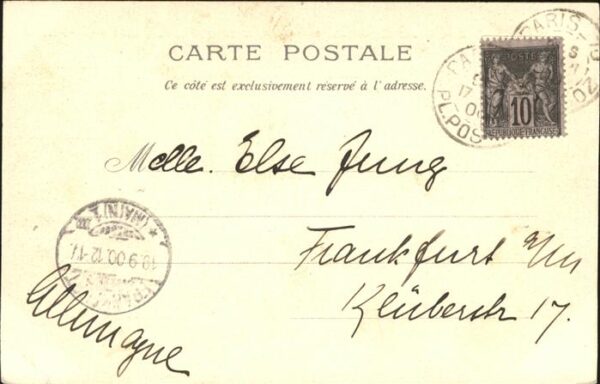 CARTE POSTALE
Ce côté est exclusivement réservé à l'adresse.
POSTE
10
REPUBLIQUE FRANÇAISE
PARIS
17
PL. POS
Melle. Else Jung
Frankfurt a/m
Klüberstr 17.
Allemagne
(MAIN) 1
19.9.00.12-1